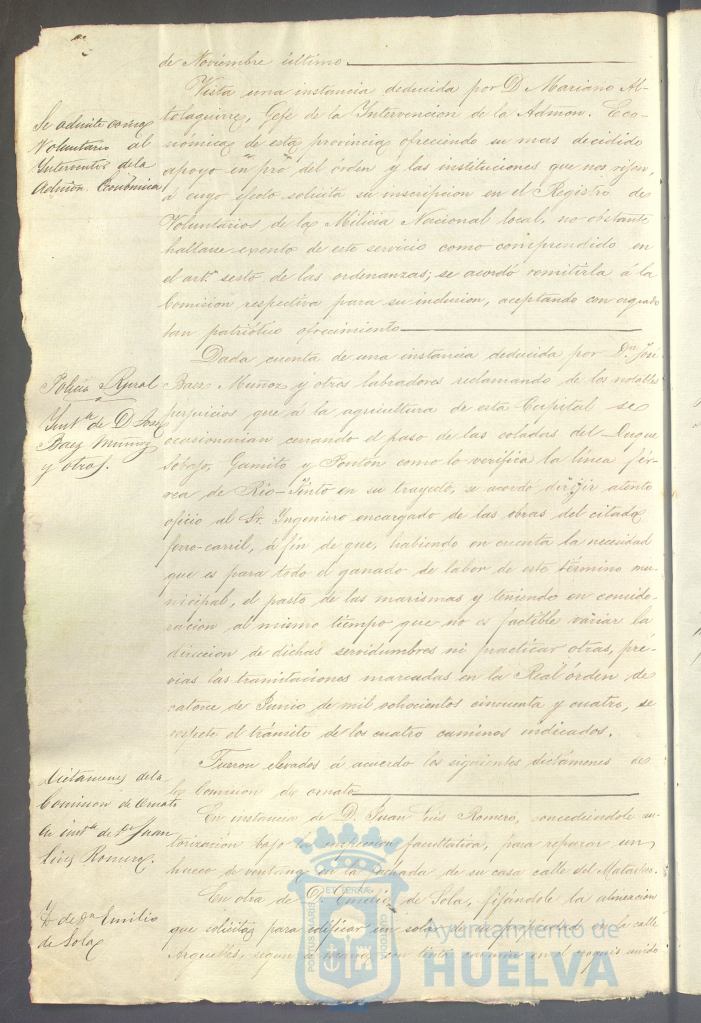 de Noviembre último.
Vista una instancia deducida por D Mariano Al-
tolaguirre, Gefe de la Intervencion de la Admon. Eco-
nómica de esta provincia ofreciendo su mas decidido
apoyo en pró del órden y las instituciones que nos rijen,
á cuyo efecto solicita su inscripcion en el Registro de
Voluntarios de la Milicia Nacional local, no obstante
hallarse exento de este servicio como comprendido en
el artº sesto de las ordenanzas; se acordó remitirla á la
Comision respectiva para su inclusion, aceptando con agrado
tan patriótico ofrecimiento
Se admite como
Voluntario al
Interventor de la
Admon. Económica
Dada cuenta de una instancia deducida por Dn. José
Baez Muñoz y otros labradores reclamando de los notables
perjuicios que á la agricultura de esta Capital se
ocasionarian cerrando el paso de las coladas del Duque
Lobajo, Gamito y Pontón como lo verifica la línea fér-
rea de Rio-Tinto en su trayecto, se acordó dirijir atento
oficio al Sr. Ingeniero encargado de las obras del citado
ferro-carril, á fin de que, habiendo en cuenta la necesidad
que es para todo el ganado de labor de este término mu-
nicipal, el pasto de las marismas y teniendo en conside-
racion al mismo tiempo que no es factible variar la
direccion de dichas servidumbres ni practicar otras, pré-
vias las tramitaciones marcadas en la Real órden de
catorce de Junio de mil ochocientos cincuenta y cuatro, se
respete el tránsito de los cuatro caminos indicados.
Policia Rural
Instª de D José
Baez Muñoz
y otros.
Fueron elevados á acuerdo los siguientes dictámenes de
la Comision de ornato
Dictamenes de la
Comision de Ornato
En instancia de D. Juan Luis Romero, concediéndole au-
torización bajo la direccion facultativa, para reparar un
hueco de ventana en la fachada de su casa calle del Matadero.
en instª de Dn Juan
Luis Romero.
En otra de D. Emilio de Sola, fijándole la alineacion
que solicita para edificar un solar de su propiedad en la calle
Arguelles, segun se marca con tinta carmin en el croquis unido
Y de Dn Emilio
de Sola
PORTUS MARIS
ET TERRAE
CUSTODIA
Ayuntamiento de
HUELVA